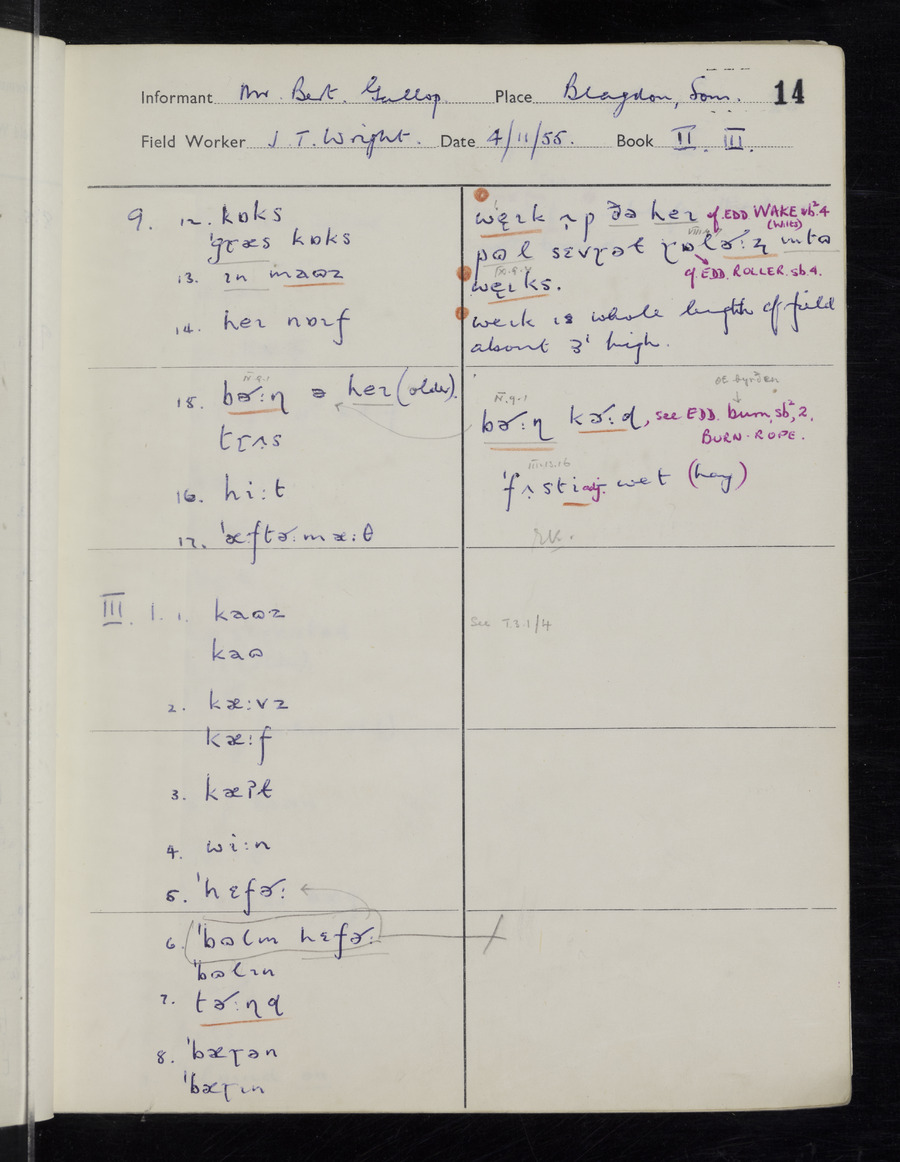 Informant Mr. Bert. Gallop. Place Blagdon, Som. 14
Field Worker J. T. Wright. Date 4/11/55. Book II. III.
9. 12. kɒks
ˈgɽæs kɒks
13. ɪn maʊz
14. heɪ nɒɪf
IV.9.1
15. bəʴ:ɳ ə heɪ (older).
tɽʌs
16. hi:t
17. ˈæftəʴ:mæ:θ
III. 1. 1. kaʊz
kaʊ
2. kæ:vz
kæ:f
3. kæʔt
4. wi:n
5. ˈhɛfəʴ:
6. ˈbʊlɪn hɛfəʴ:
ˈbʊlɪn
7. təʴ:ɳɖ
8. ˈbæɽən
ˈbæɽɪn
weɪk ʌp ðə heɪ cf. EDD WAKE sb.4
(Wilts)
pʊl sɛvɽət ɽɒləʴ:ɀ ɪntə
cf. EDD. ROLLER. sb.4.
weɪks.
weɪk is whole length of field
about 3' high.
OE byrðen
IV.9.1
bəʴ:ɳ kəʴ:ɖ, see EDD. burn, sb.2, 2.
BURN-ROPE.
III.13.16
ˈfʌsti adj. wet (hay)
See I.3.1/4